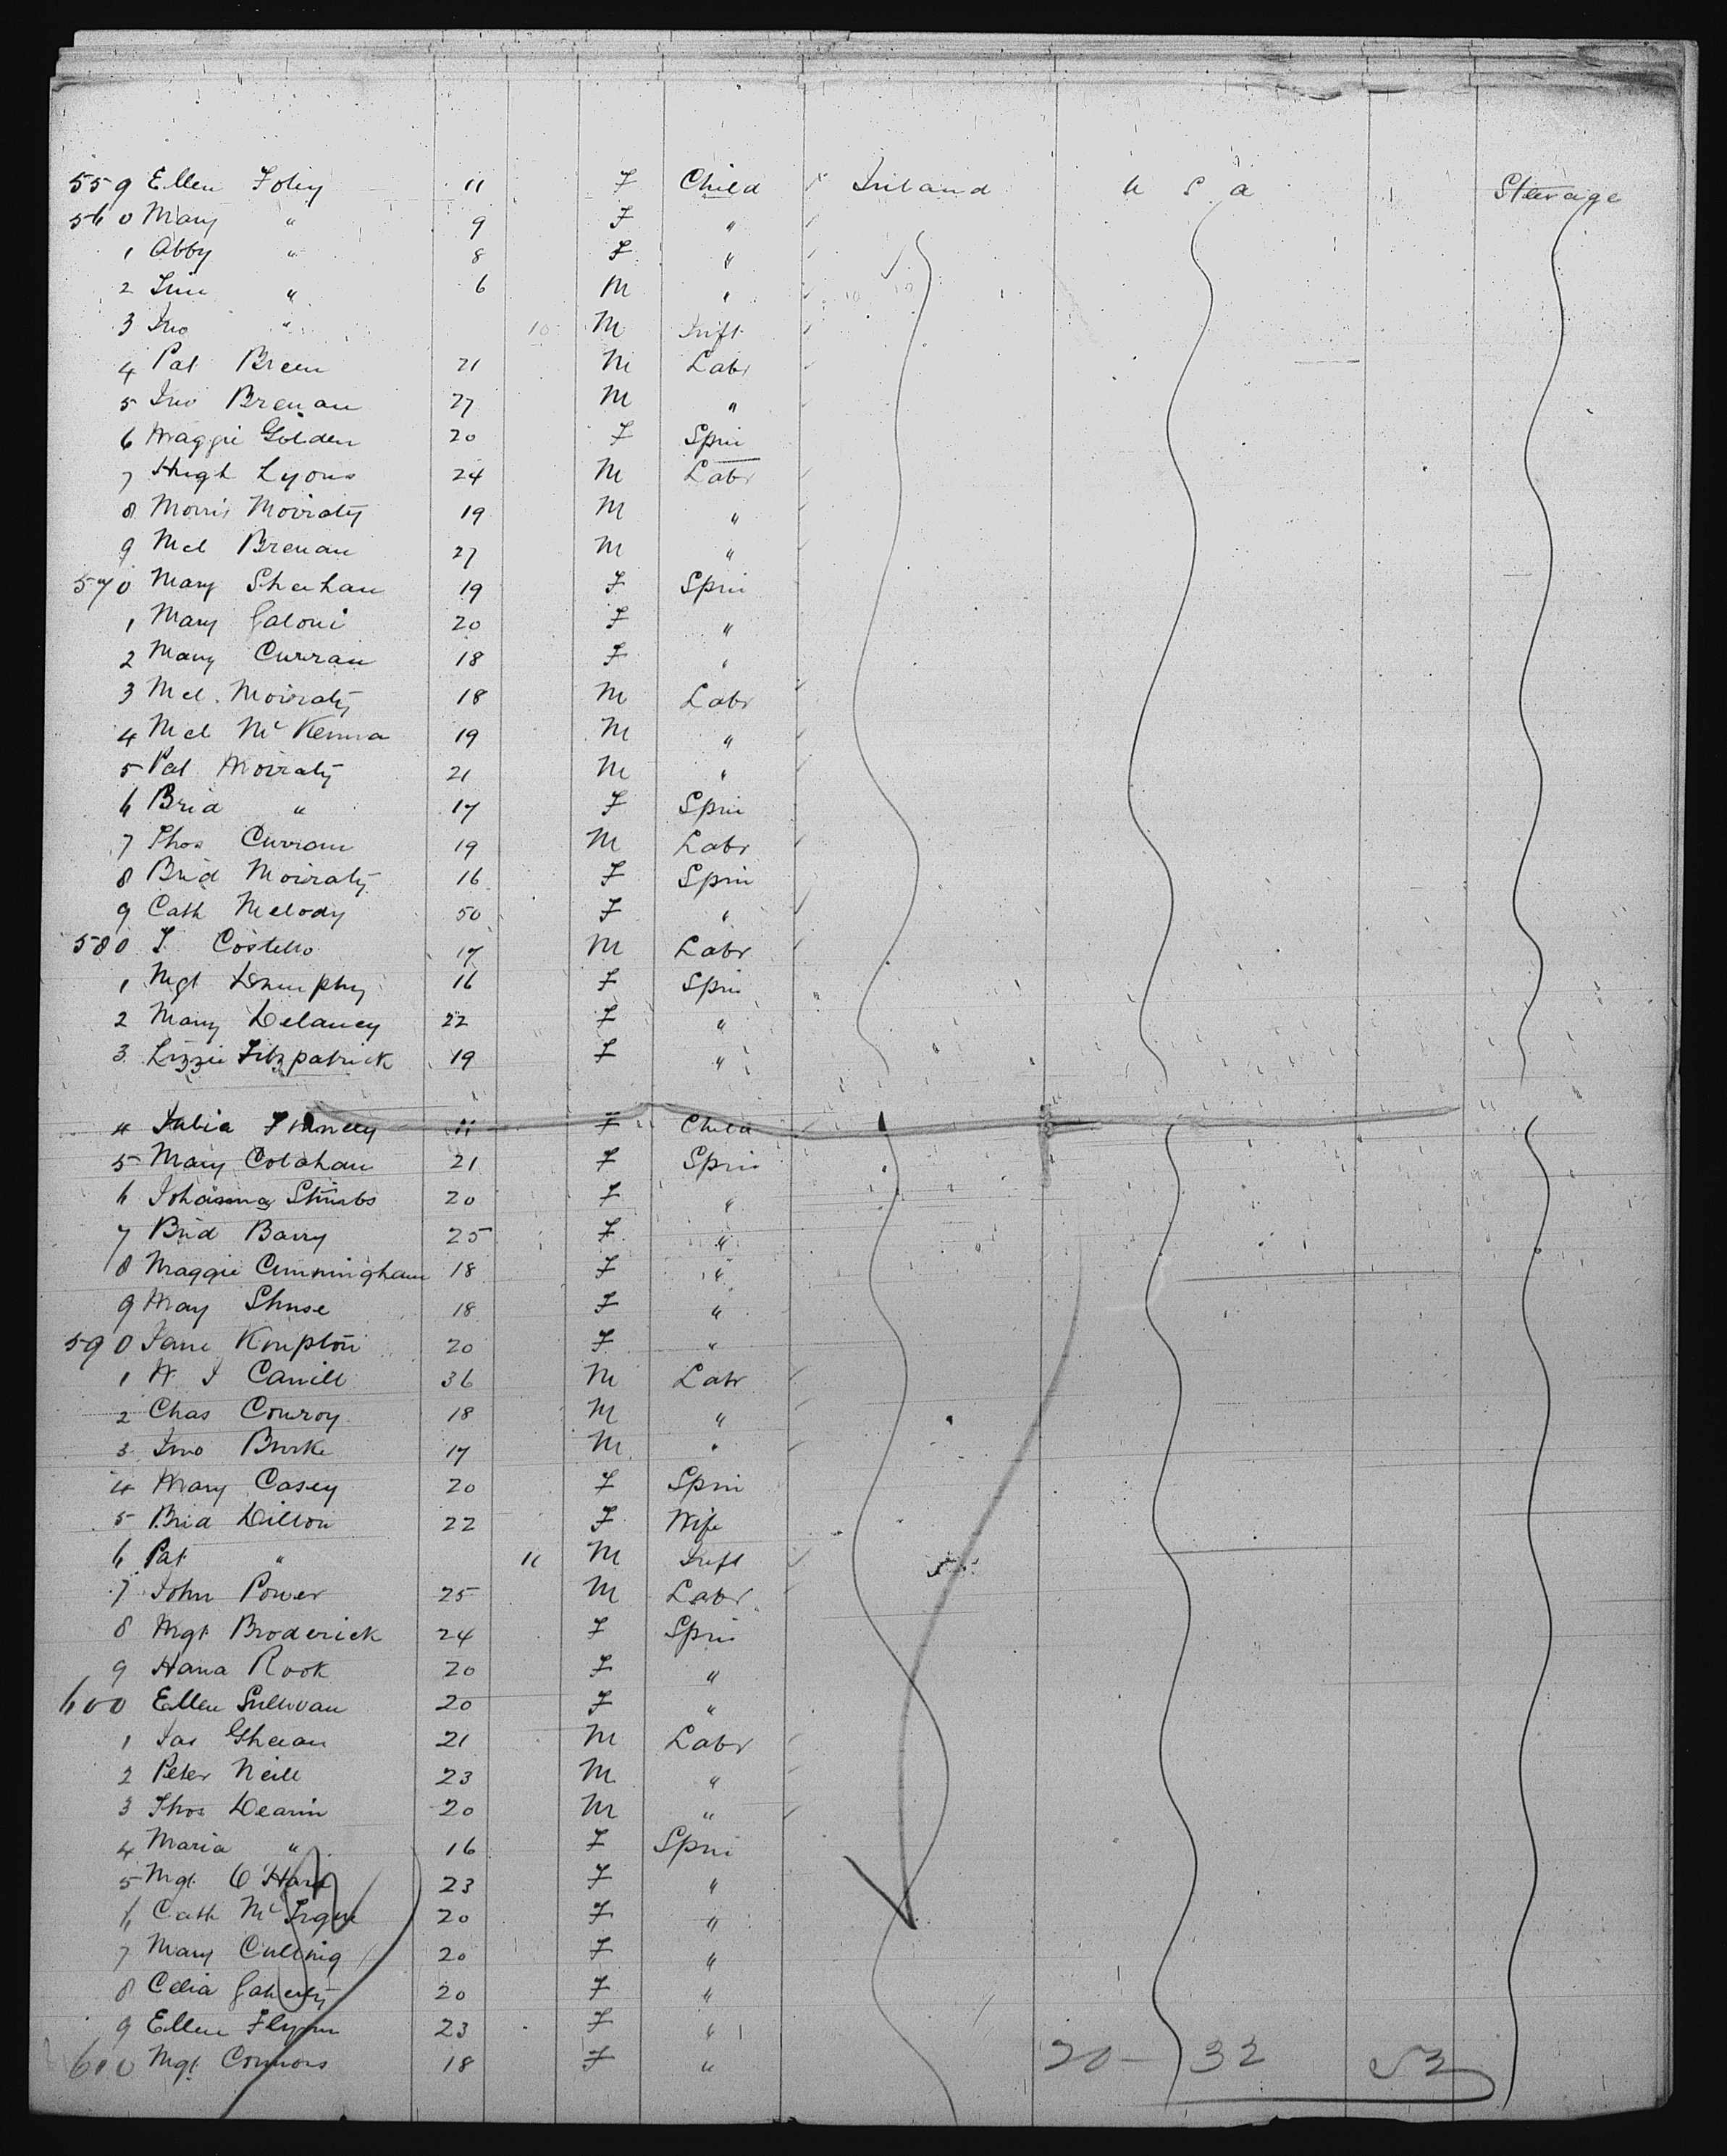 559 Ellen Foley 11 F Child Ireland U S A Steerage
560 Mary " 9 F "
1 Abby " 8 F "
2 Jim " 6 M "
3 Jno " 10 M Inft
4 Pat Breen 21 M Labr
5 Jno Brenan 27 M "
6 Maggie Golden 20 F Spin
7 Hugh Lyons 24 M Labr
8 Morris Moiraty 19 M "
9 Mcl Brenan 27 M "
570 Mary Sheehan 19 F Spin
1 Mary Galoni 20 F "
2 Mary Curran 18 F "
3 Mcl. Moiraty 18 M Labr
4 Mcl McKenna 19 M "
5 Pat Moiraty 21 M "
6 Brid " 17 F Spin
7 Thos Curran 19 M Labr
8 Brid Moiraty 16 F Spin
9 Cath Melody 50 F "
580 J. Costello 17 M Labr
1 Mgt Dumphy 16 F Spin
2 Mary Delaney 22 F "
3 Lizzie Fitzpatrick 19 F "
4 Julia 11 F Child
5 Mary Colohan 21 F Spin
6 Johanna 20 F "
7 Brid Barry 25 F "
8 Maggie Cunningham 18 F "
9 May 18 F "
590 Jane Knipton 20 F "
1 W J Carvill 36 M Labr
2 Chas Conroy 18 M "
3 Jno Burke 17 M "
4 Mary Casey 20 F Spin
5 Brid Dillon 22 F Wife
6 Pat " 11 M Inft
7 John Power 25 M Labr
8 Mgt Broderick 24 F Spin
9 Hana Rook 20 F "
600 Ellen Sullivan 20 F "
1 Jas Gheean 21 M Labr
2 Peter Neill 23 M "
3 Thos Dearin 20 M "
4 Maria " 16 F Spin
5 Mgt O'Hara 23 F "
6 Cath McTigue 20 F "
7 Mary Culling 20 F "
8 Celia Gaherty 20 F "
9 Ellen Flynn 23 F "
610 Mgt Connors 18 F " 20 - 32 52